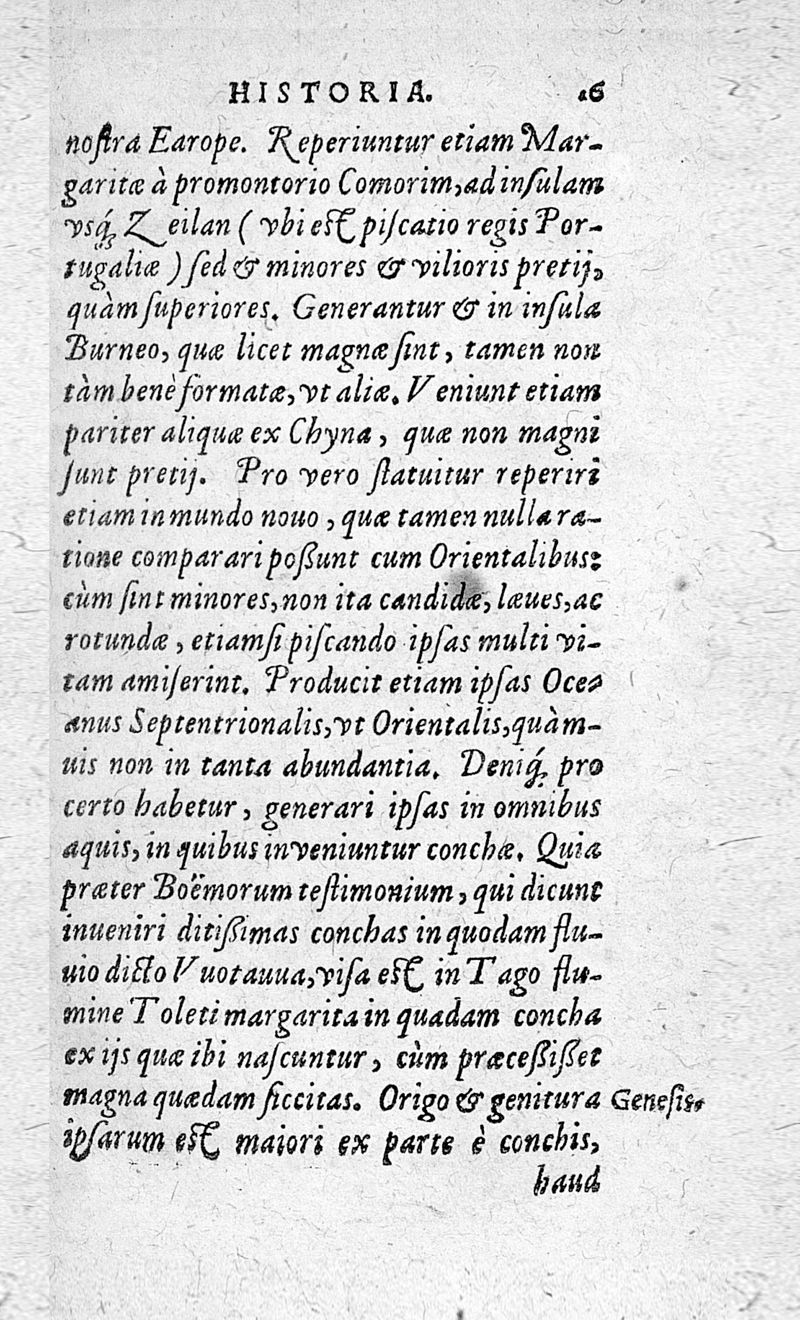 HISTORIA. 16
noſtra Earope. Reperiuntur etiam Mar-
garitæ à promontorio Comorim, ad inſulam
vsq́; Zeilan ( vbi eſt piſcatio regis Por-
tugaliæ ) ſed & minores & vilioris pretij,
quàm ſuperiores. Generantur & in inſula
Burneo, quæ licet magnæ ſint, tamen non
tàm benè formatæ, vt aliæ. Veniunt etiam
pariter aliquæ ex Chyna, quæ non magni
ſunt pretij. Pro vero ſtatuitur reperiri
etiam in mundo nouo, quæ tamen nulla ra-
tione comparari poßunt cum Orientalibus:
cùm ſint minores, non ita candidæ, læues, ac
rotundæ, etiamſi piſcando ipſas multi vi-
tam amiſerint. Producit etiam ipſas Oce-
anus Septentrionalis, vt Orientalis, quàm-
uis non in tanta abundantia. Deniq́; pro
certo habetur, generari ipſas in omnibus
aquis, in quibus inveniuntur conchæ. Quia
præter Boëmorum teſtimonium, qui dicunt
inueniri ditißimas conchas in quodam flu-
uio dicto Vuotauua, viſa eſt in Tago flu-
mine Toleti margarita in quadam concha
ex ijs quæ ibi naſcuntur, cùm præceßißet
magna quædam ſiccitas. Origo & genitura Geneſis.
ipſarum eſt maiori ex parte è conchis,
haud